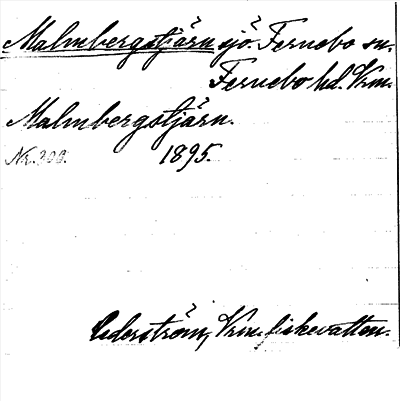 Malmbergstjärn sjö. Fernebo sn.
Fernebo hd. Vrm.
Malmbergstjärn.
Nr. 1895.
Cederström, Vrm. fiskevatten.